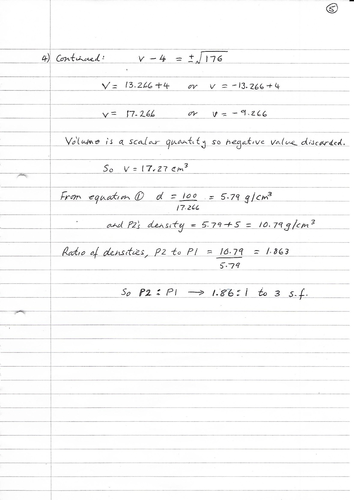 ⑤
4) Continued: v - 4 = ±√176
v = 13.266 + 4 or v = -13.266 + 4
v = 17.266 or v = -9.266
Volume is a scalar quantity so negative value discarded.
So v = 17.27 cm³
From equation ① d = 100/17.266 = 5.79 g/cm³
and P2's density = 5.79 + 5 = 10.79 g/cm³
Ratio of densities, P2 to P1 = 10.79/5.79 = 1.863
So P2 : P1 → 1.86 : 1 to 3 s.f.